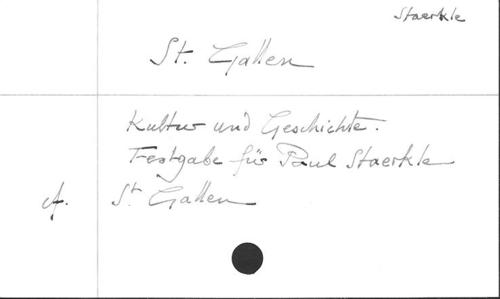 Staerkle
St. Gallen
Kultur und Geschichte.
Festgabe für Paul Staerkle
cf. St. Gallen